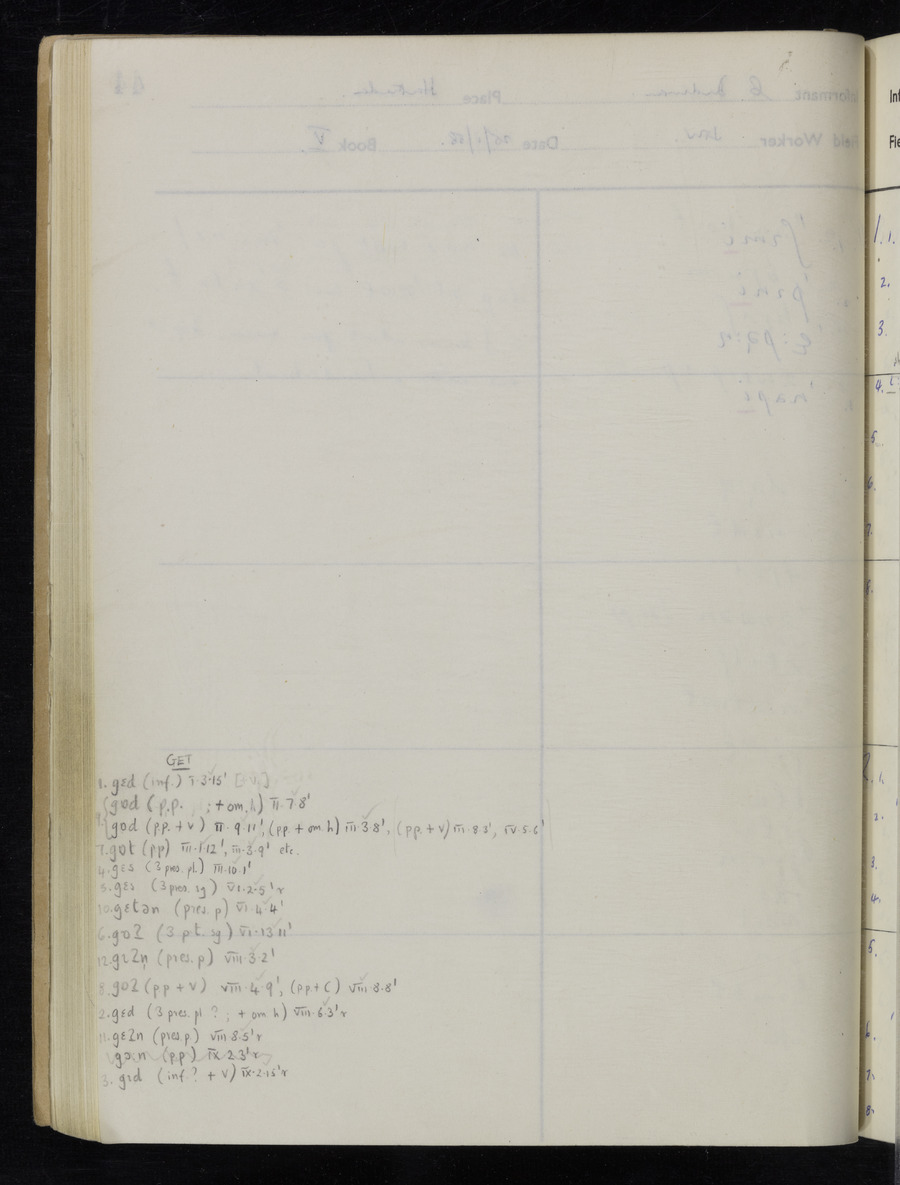 GET
1. gɛd (inf.) I·3·15' [-V.]
{gɒd (p.p. ; + om. h) II·7·8'
god (pp. + v) II·9·11', (pp. + om h) III·3·8', (pp. + v) III·8·3', IV·5·6'
7. gɒt (pp) III·1·12', III·3·9' etc.
4. gɛs (3 pres. pl.) III·10·1'
5. gɛs (3 pres. sg) VI·2·5' r
10. gɛtən (pres. p) VI·4·4'
6. gɒʔ (3 pt. sg) VI·13·11'
12. gɪʔn̩ (pres. p) VIII·3·2'
8. gɒʔ (pp + v) VIII·4·9', (pp. + C) VIII·8·8'
2. gɛd (3 pres. pl ? ; + om h) VIII·6·3' r
11. gɛʔn (pres p.) VIII·8·5' r
gɔ:n (p.p.) IX·2·3' r
3. gɪd (inf.? + v) IX·2·15' r
Int
Fie
1. 1.
2.
3.
4.
5.
6.
7.
8.
2. 1.
2.
3.
4.
5.
6.
7.
8.